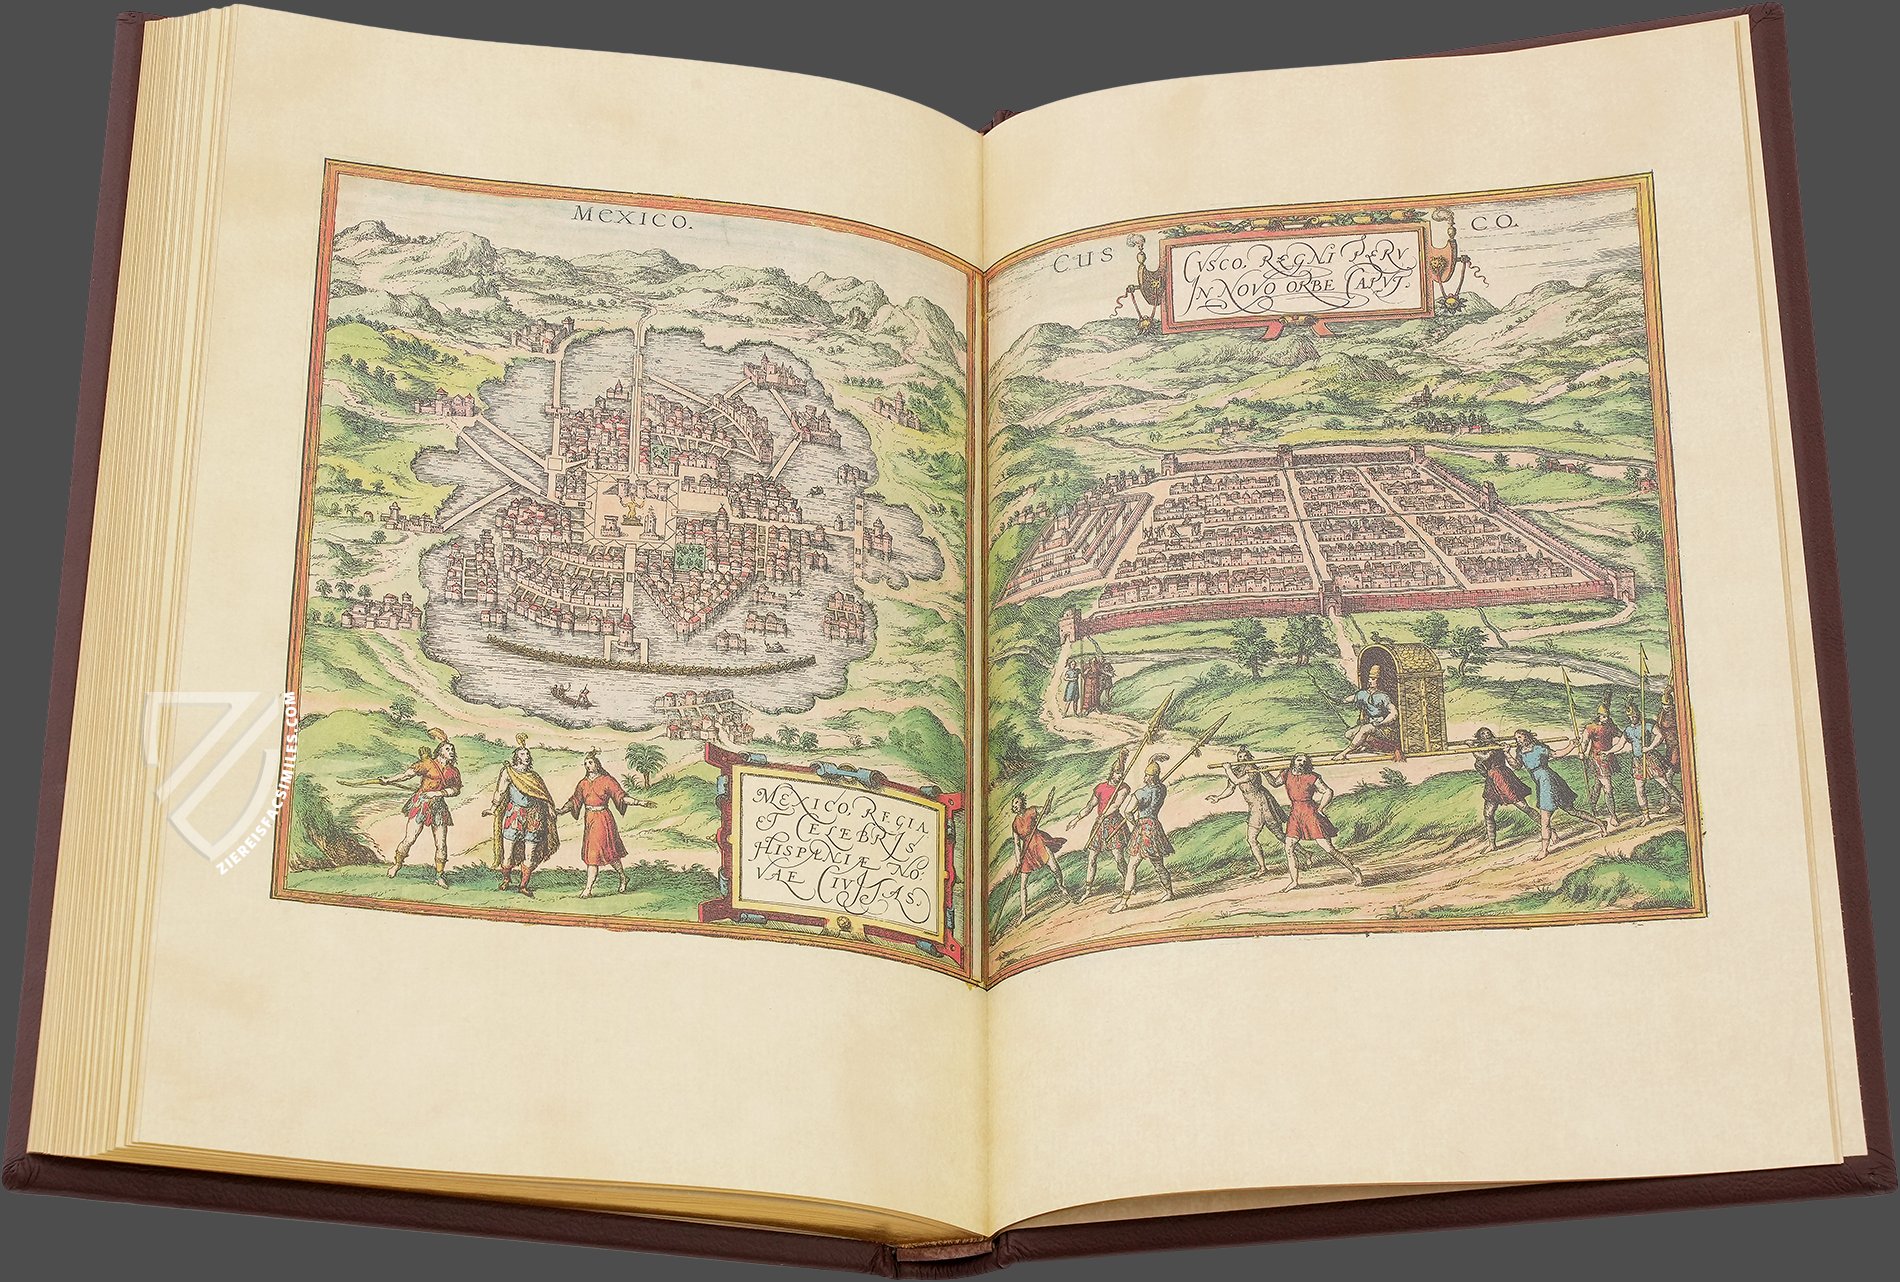 MEXICO.
MEXICO, REGIA
ET CELEBRIS
HISPANIÆ NO-
VAE CIVITAS.
CUSCO.
CVSCO, REGNI PERV
IN NOVO ORBE CAPVT.
ZIEREISFACSIMILES.COM